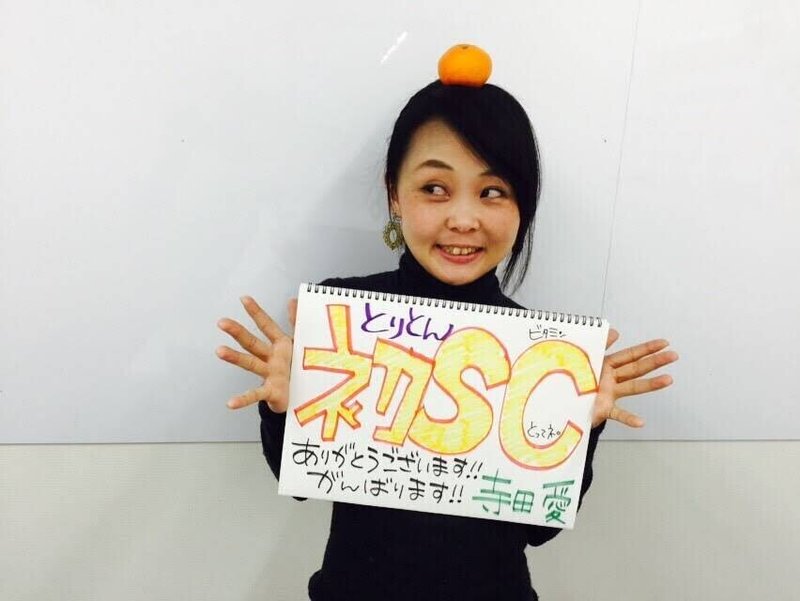 とりとん
ビタミン
初SC
とってネ。
ありがとうございます!!
がんばります!! 寺田 愛